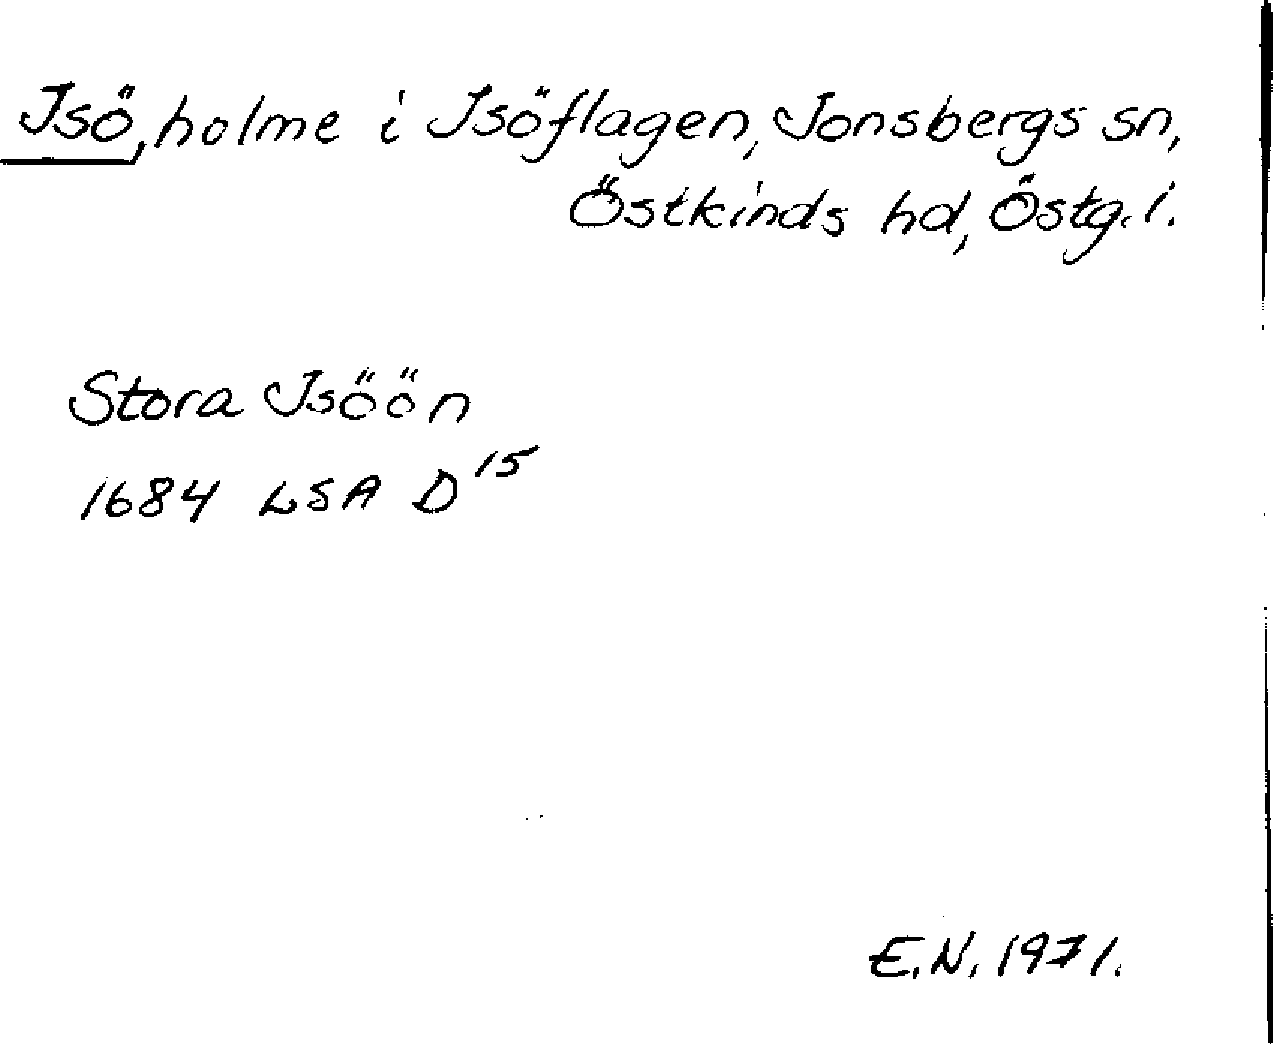 Isö, holme i Isöflagen, Jonsbergs sn,
Östkinds hd, Östg. l.
Stora Isöön
1684 LSA D 15
E.N. 1971.